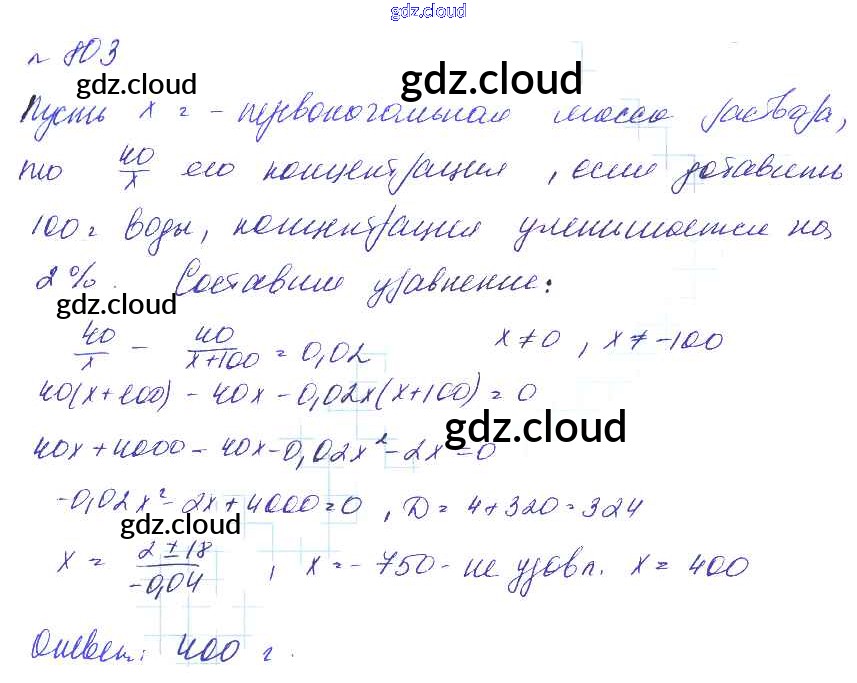 gdz.cloud
№ 803
gdz.cloud gdz.cloud
Пусть x г - первоначальная масса раствора,
то 40/x его концентрация, если добавить
100 г воды, концентрация уменьшается на
2%. Составим уравнение:
gdz.cloud
40/x - 40/(x+100) = 0,02 x ≠ 0, x ≠ -100
40(x+100) - 40x - 0,02x(x+100) = 0
gdz.cloud
40x + 4000 - 40x - 0,02x² - 2x = 0
-0,02x² - 2x + 4000 = 0, D = 4 + 320 = 324
gdz.cloud
x = (2 ± 18)/(-0,04), x = -750 - не удовл. x = 400
Ответ: 400 г.